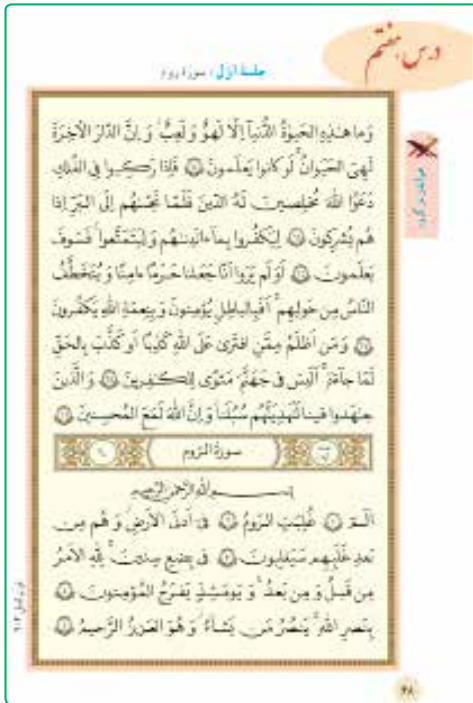 درس هفتم
جلسهٔ اوّل : سورهٔ روم
وَما هٰذِهِ الحَيوٰةُ الدُّنيآ اِلّا لَهوٌ وَ لَعِبٌ وَ اِنَّ الدّارَ الآخِرَةَ
لَهِىَ الحَيَوانُ لَو كانوا يَعلَمونَ ﴿٦٤﴾ فَاِذا رَكِبوا فِى الفُلكِ
دَعَوُا اللهَ مُخلِصينَ لَهُ الدّينَ فَلَمّا نَجّىٰهُم اِلَى البَرِّ اِذا
هُم يُشرِكونَ ﴿٦٥﴾ لِيَكفُروا بِمآ ءاتَينٰهُم وَ لِيَتَمَتَّعوا فَسَوفَ
يَعلَمونَ ﴿٦٦﴾ اَوَلَم يَرَوا اَنّا جَعَلنا حَرَمًا ءامِنًا وَ يُتَخَطَّفُ
النّاسُ مِن حَولِهِم اَفَبِالباطِلِ يُؤمِنونَ وَ بِنِعمَةِ اللهِ يَكفُرونَ
﴿٦٧﴾ وَ مَن اَظلَمُ مِمَّنِ افتَرىٰ عَلَى اللهِ كَذِبًا اَو كَذَّبَ بِالحَقِّ
لَمّا جآءَهُ اَلَيسَ فى جَهَنَّمَ مَثوًى لِلكٰفِرينَ ﴿٦٨﴾ وَ الَّذينَ
جٰهَدوا فينا لَنَهدِيَنَّهُم سُبُلَنا وَ اِنَّ اللهَ لَمَعَ المُحسِنينَ ﴿٦٩﴾
سورة الرّوم
بِسمِ اللهِ الرَّحمٰنِ الرَّحيمِ
الٓمٓ ﴿١﴾ غُلِبَتِ الرّومُ ﴿٢﴾ فى اَدنَى الاَرضِ وَ هُم مِن
بَعدِ غَلَبِهِم سَيَغلِبونَ ﴿٣﴾ فى بِضعِ سِنينَ لِلّٰهِ الاَمرُ
مِن قَبلُ وَ مِن بَعدُ وَ يَومَئِذٍ يَفرَحُ المُؤمِنونَ ﴿٤﴾
بِنَصرِ اللهِ يَنصُرُ مَن يَشآءُ وَ هُوَ العَزيزُ الرَّحيمُ ﴿٥﴾
۶۸